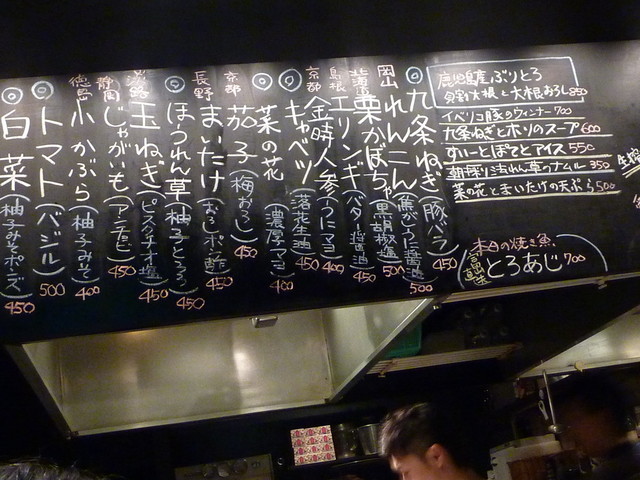 九条ねぎ（豚バラ）450
岡山 れんこん（焦がしうに醤油）500
栗かぼちゃ（黒胡椒塩）500
エリンギ（バター醤油）450
島根 金時人参（うにマヨ）400
京都 キャベツ（落花生油）450
菜の花（濃厚マヨ）400
京都 茄子（梅おろし）450
長野 まいたけ（おろしポン酢）450
ほうれん草（柚子とろろ）450
淡路 玉ねぎ（ピスタチオ塩）450
静岡 じゃがいも（アンチョビ）450
徳島 小かぶら（柚子みそ）400
トマト（バジル）500
白菜（柚子みそポンズ）450
鹿児島産ぶりとろ
大根おろし850
イベリコ豚のウィンナー 700
九条ねぎとホソのスープ 600
すいーとぽてとアイス 550
朝採りほうれん草のナムル 350
菜の花とまいたけの天ぷら 500
本日の焼き魚
とろあじ 700